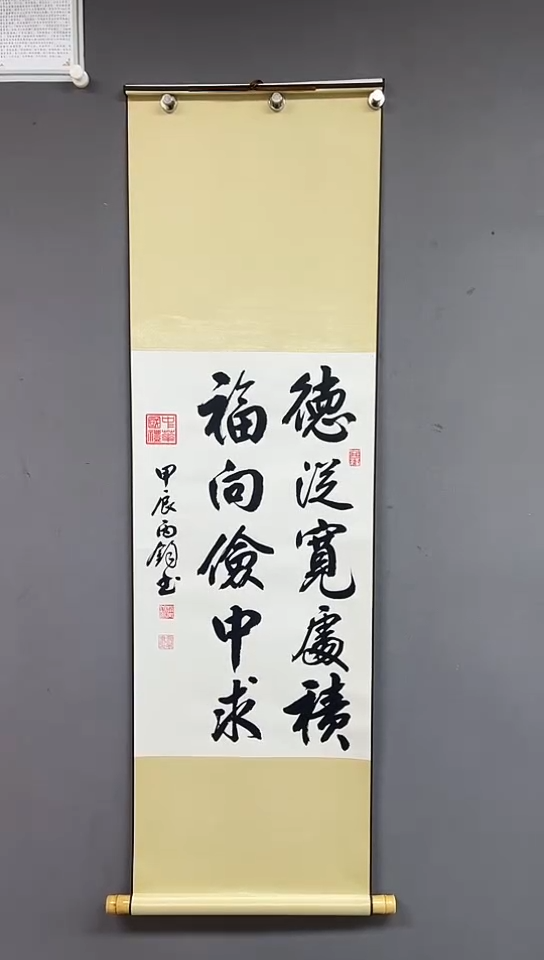 德從寬處積
福向儉中求
甲辰丙鈞書